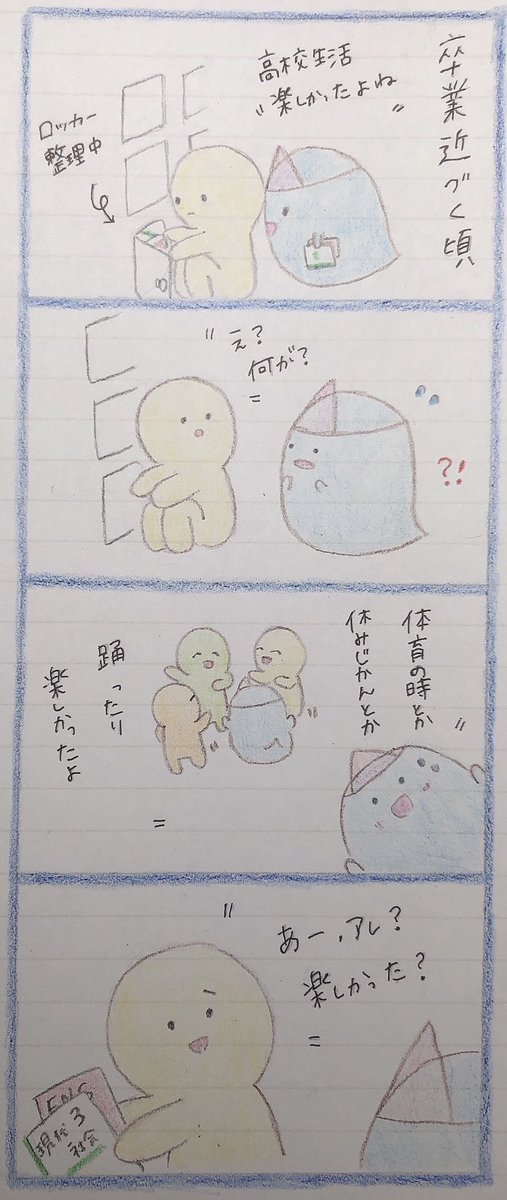 卒業近づく頃
高校生活
"楽しかったよね"
ロッカー
整理中
"え?
何が?"
?!
"体育の時とか
休みじかんとか
踊ったり
楽しかったよ"
"あー、アレ?
楽しかった?"
ENG
現代
社会
3